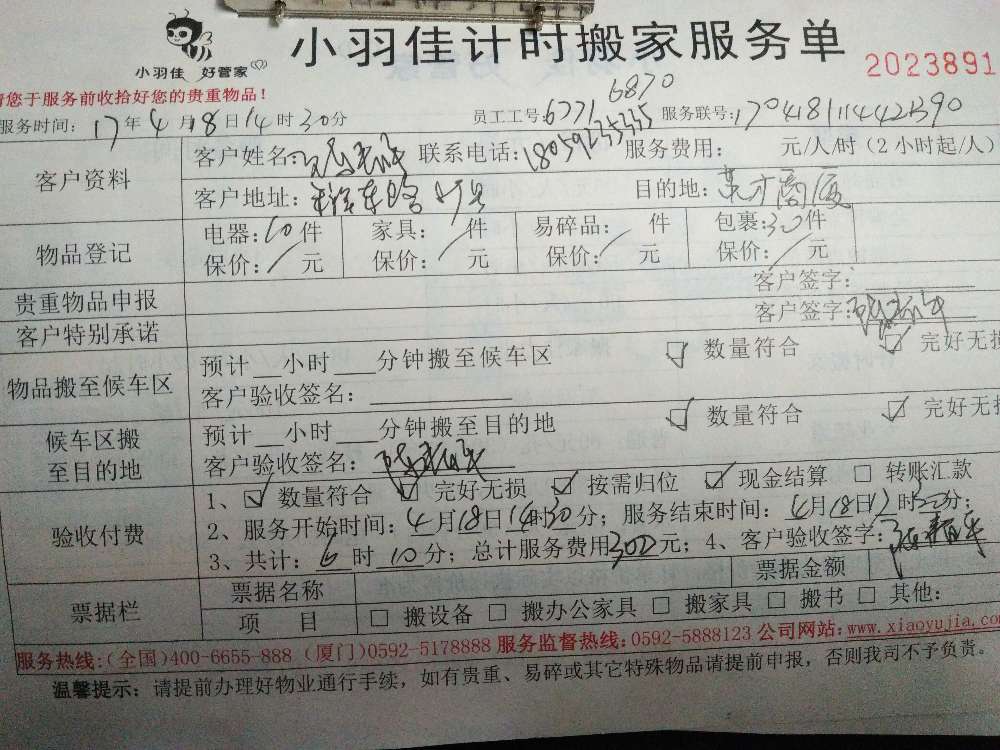 小羽佳 好管家
小羽佳计时搬家服务单
2023891
请您于服务前收拾好您的贵重物品！
6870
服务时间：17年4月18日14时30分 员工工号：6771 服务联号：1704181114421390
客户资料 客户姓名： 联系电话：18059235335 服务费用： 元/人/时（2小时起/人）
客户地址： 目的地：英才商厦
物品登记 电器：10件 家具：/件 易碎品：/件 包裹：30件
保价：/元 保价：/元 保价：/元 保价：/元
贵重物品申报 客户签字：
客户特别承诺 客户签字：
物品搬至候车区 预计__小时___分钟搬至候车区 ☑ 数量符合 ☑ 完好无损
客户验收签名：
候车区搬至目的地 预计__小时___分钟搬至目的地 ☑ 数量符合 ☑ 完好无损
客户验收签名：
验收付费 1、☑ 数量符合 ☑ 完好无损 ☑ 按需归位 ☑ 现金结算 □ 转账汇款
2、服务开始时间：4月18日14时30分；服务结束时间：4月18日 时 分；
3、共计：6时10分；总计服务费用300元；4、客户验收签字：
票据栏 票据名称 票据金额
项 目 □ 搬设备 □ 搬办公家具 □ 搬家具 □ 搬书 □ 其他：
服务热线：（全国）400-6655-888（厦门）0592-5178888 服务监督热线：0592-5888123 公司网站：www.xiaoyujia.com
温馨提示：请提前办理好物业通行手续，如有贵重、易碎或其它特殊物品请提前申报，否则我司不予负责。